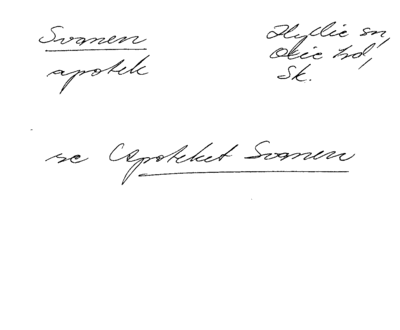 Svanen
apotek
Hyllie sn,
Oxie hd,
Sk.
se Apoteket Svanen